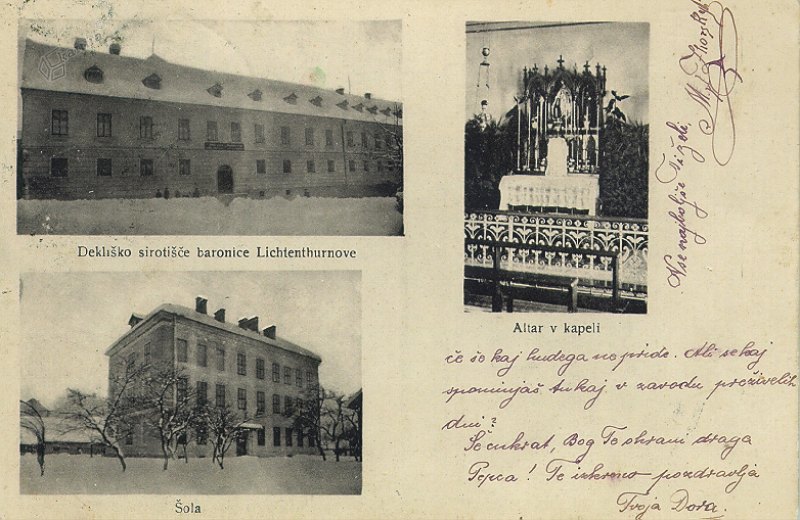 Dekliško sirotišče baronice Lichtenthurnove
Altar v kapeli
Šola
če še kaj hudega ne pride. Ali se kaj
spominjaš tukaj v zavodu preživelih
dni?
Še enkrat, Bog Te ohrani draga
Pepca! Te iskreno pozdravlja
Tvoja Dora.
Vse najboljše Ti želi,
M.